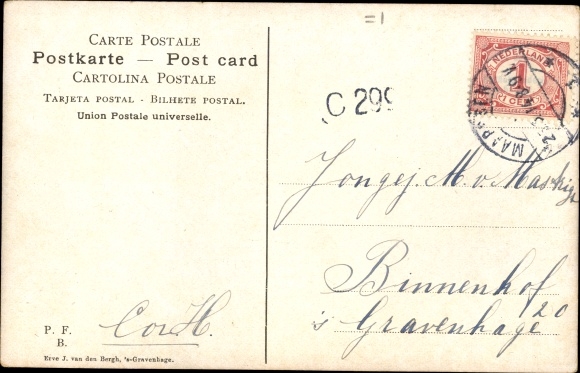 CARTE POSTALE
Postkarte — Post card
CARTOLINA POSTALE
TARJETA POSTAL - BILHETE POSTAL.
Union Postale universelle.
=1
NEDERLAND
1
CENT
C 299
Jongej. M. v. Maskijn
Binnenhof 20
's Gravenhage
P. F.
B.
Cor H.
Erve J. van den Bergh, 's-Gravenhage.